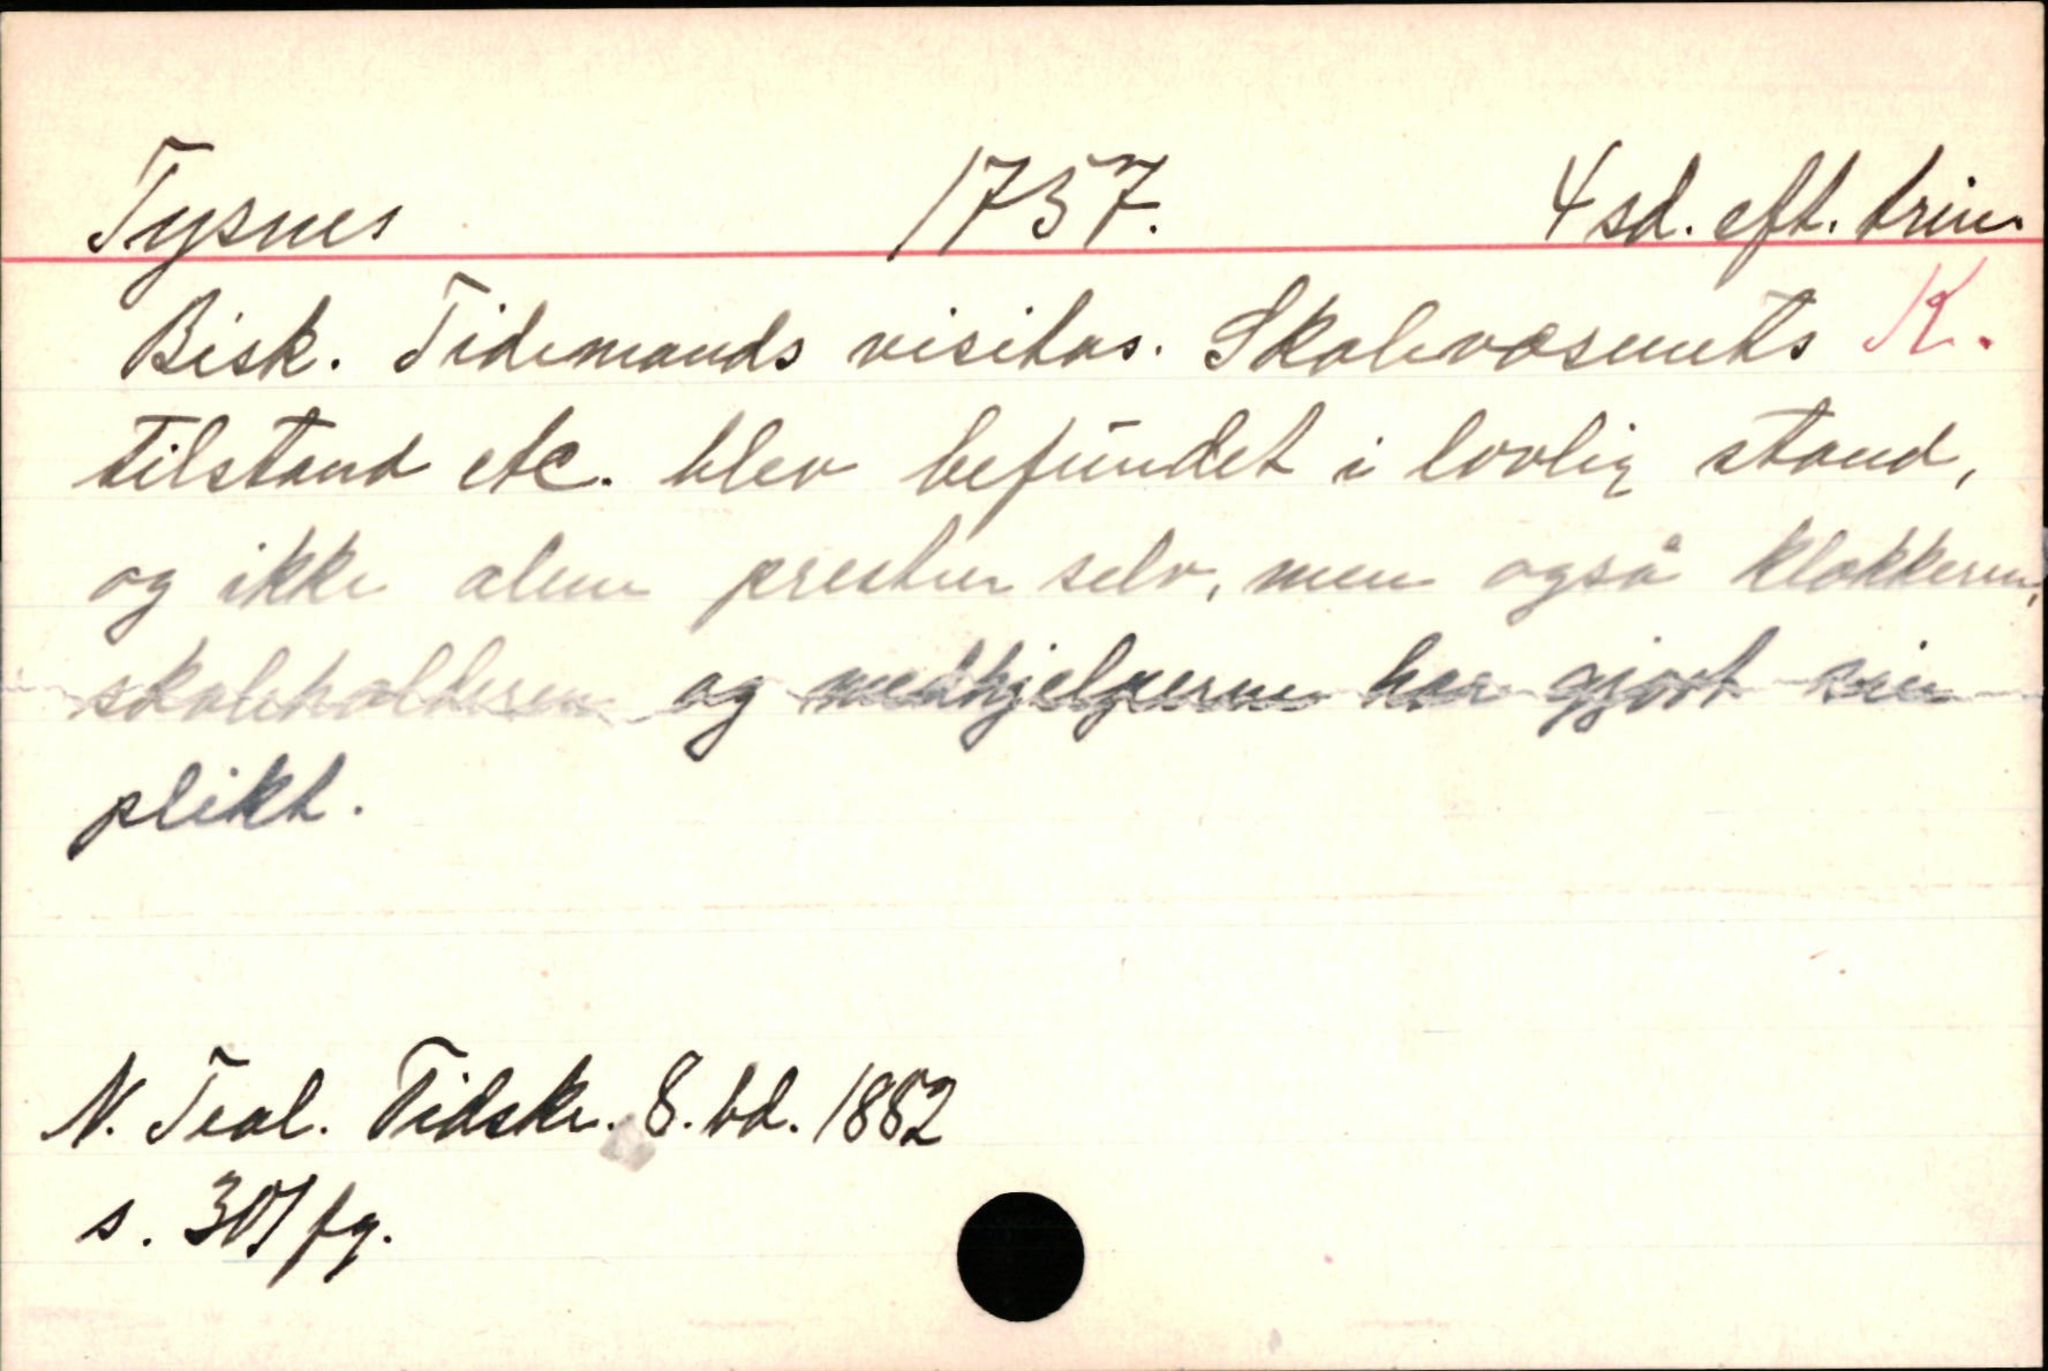 Tysnes 1757. 4 sd. eft. trin.
Bisk. Tidemands visitas. Skolevæsenets K.
tilstand etc. blev befundet i lovlig stand,
og ikke alene presten selv, men også klokkeren,
skoleholderen og medhjelperne har gjort sin
plikt.
N. Teol. Tidskr. 8. bd. 1882
s. 301 fg.